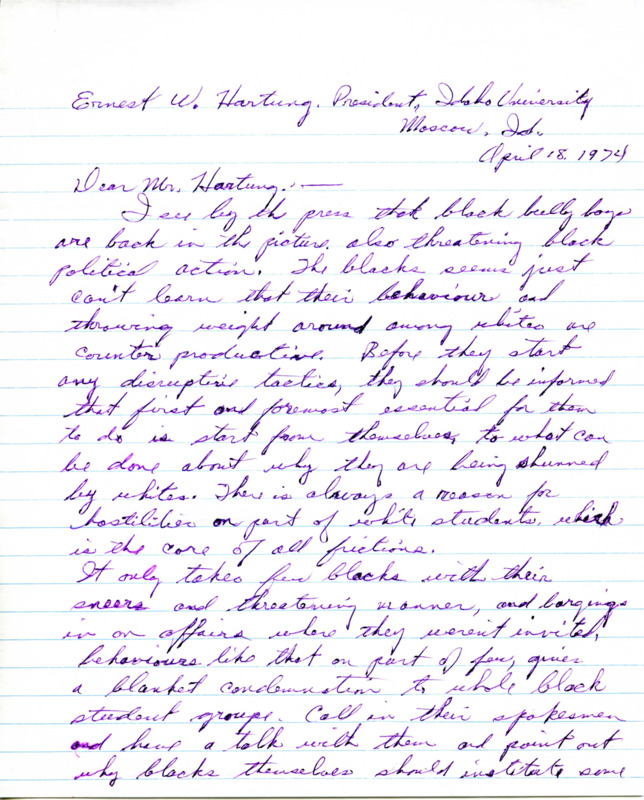 Ernest W. Hartung. President, Idaho University
Moscow, Id.
April 18. 1974
Dear Mr. Hartung. :—
I see by th press that black bully boys
are back in th picture, also threatening black
political action. The blacks seems just
can't learn that their behaviour and
throwing weight around among whites are
counter productive. Before they start
any disruptive tactics, they should be informed
that first and foremost essential for them
to do is start from themselves, to what can
be done about why they are being shunned
by whites. There is always a reason for
hostilities on part of white students which
is the core of all frictions.
It only takes few blacks with their
sneers and threatening manner, and bargings
in on affairs where they werent invited,
behaviours like that on part of few, gives
a blanket condemnation to whole black
student groups. Call in their spokesmen
and have a talk with them and point out
why blacks themselves should institute some